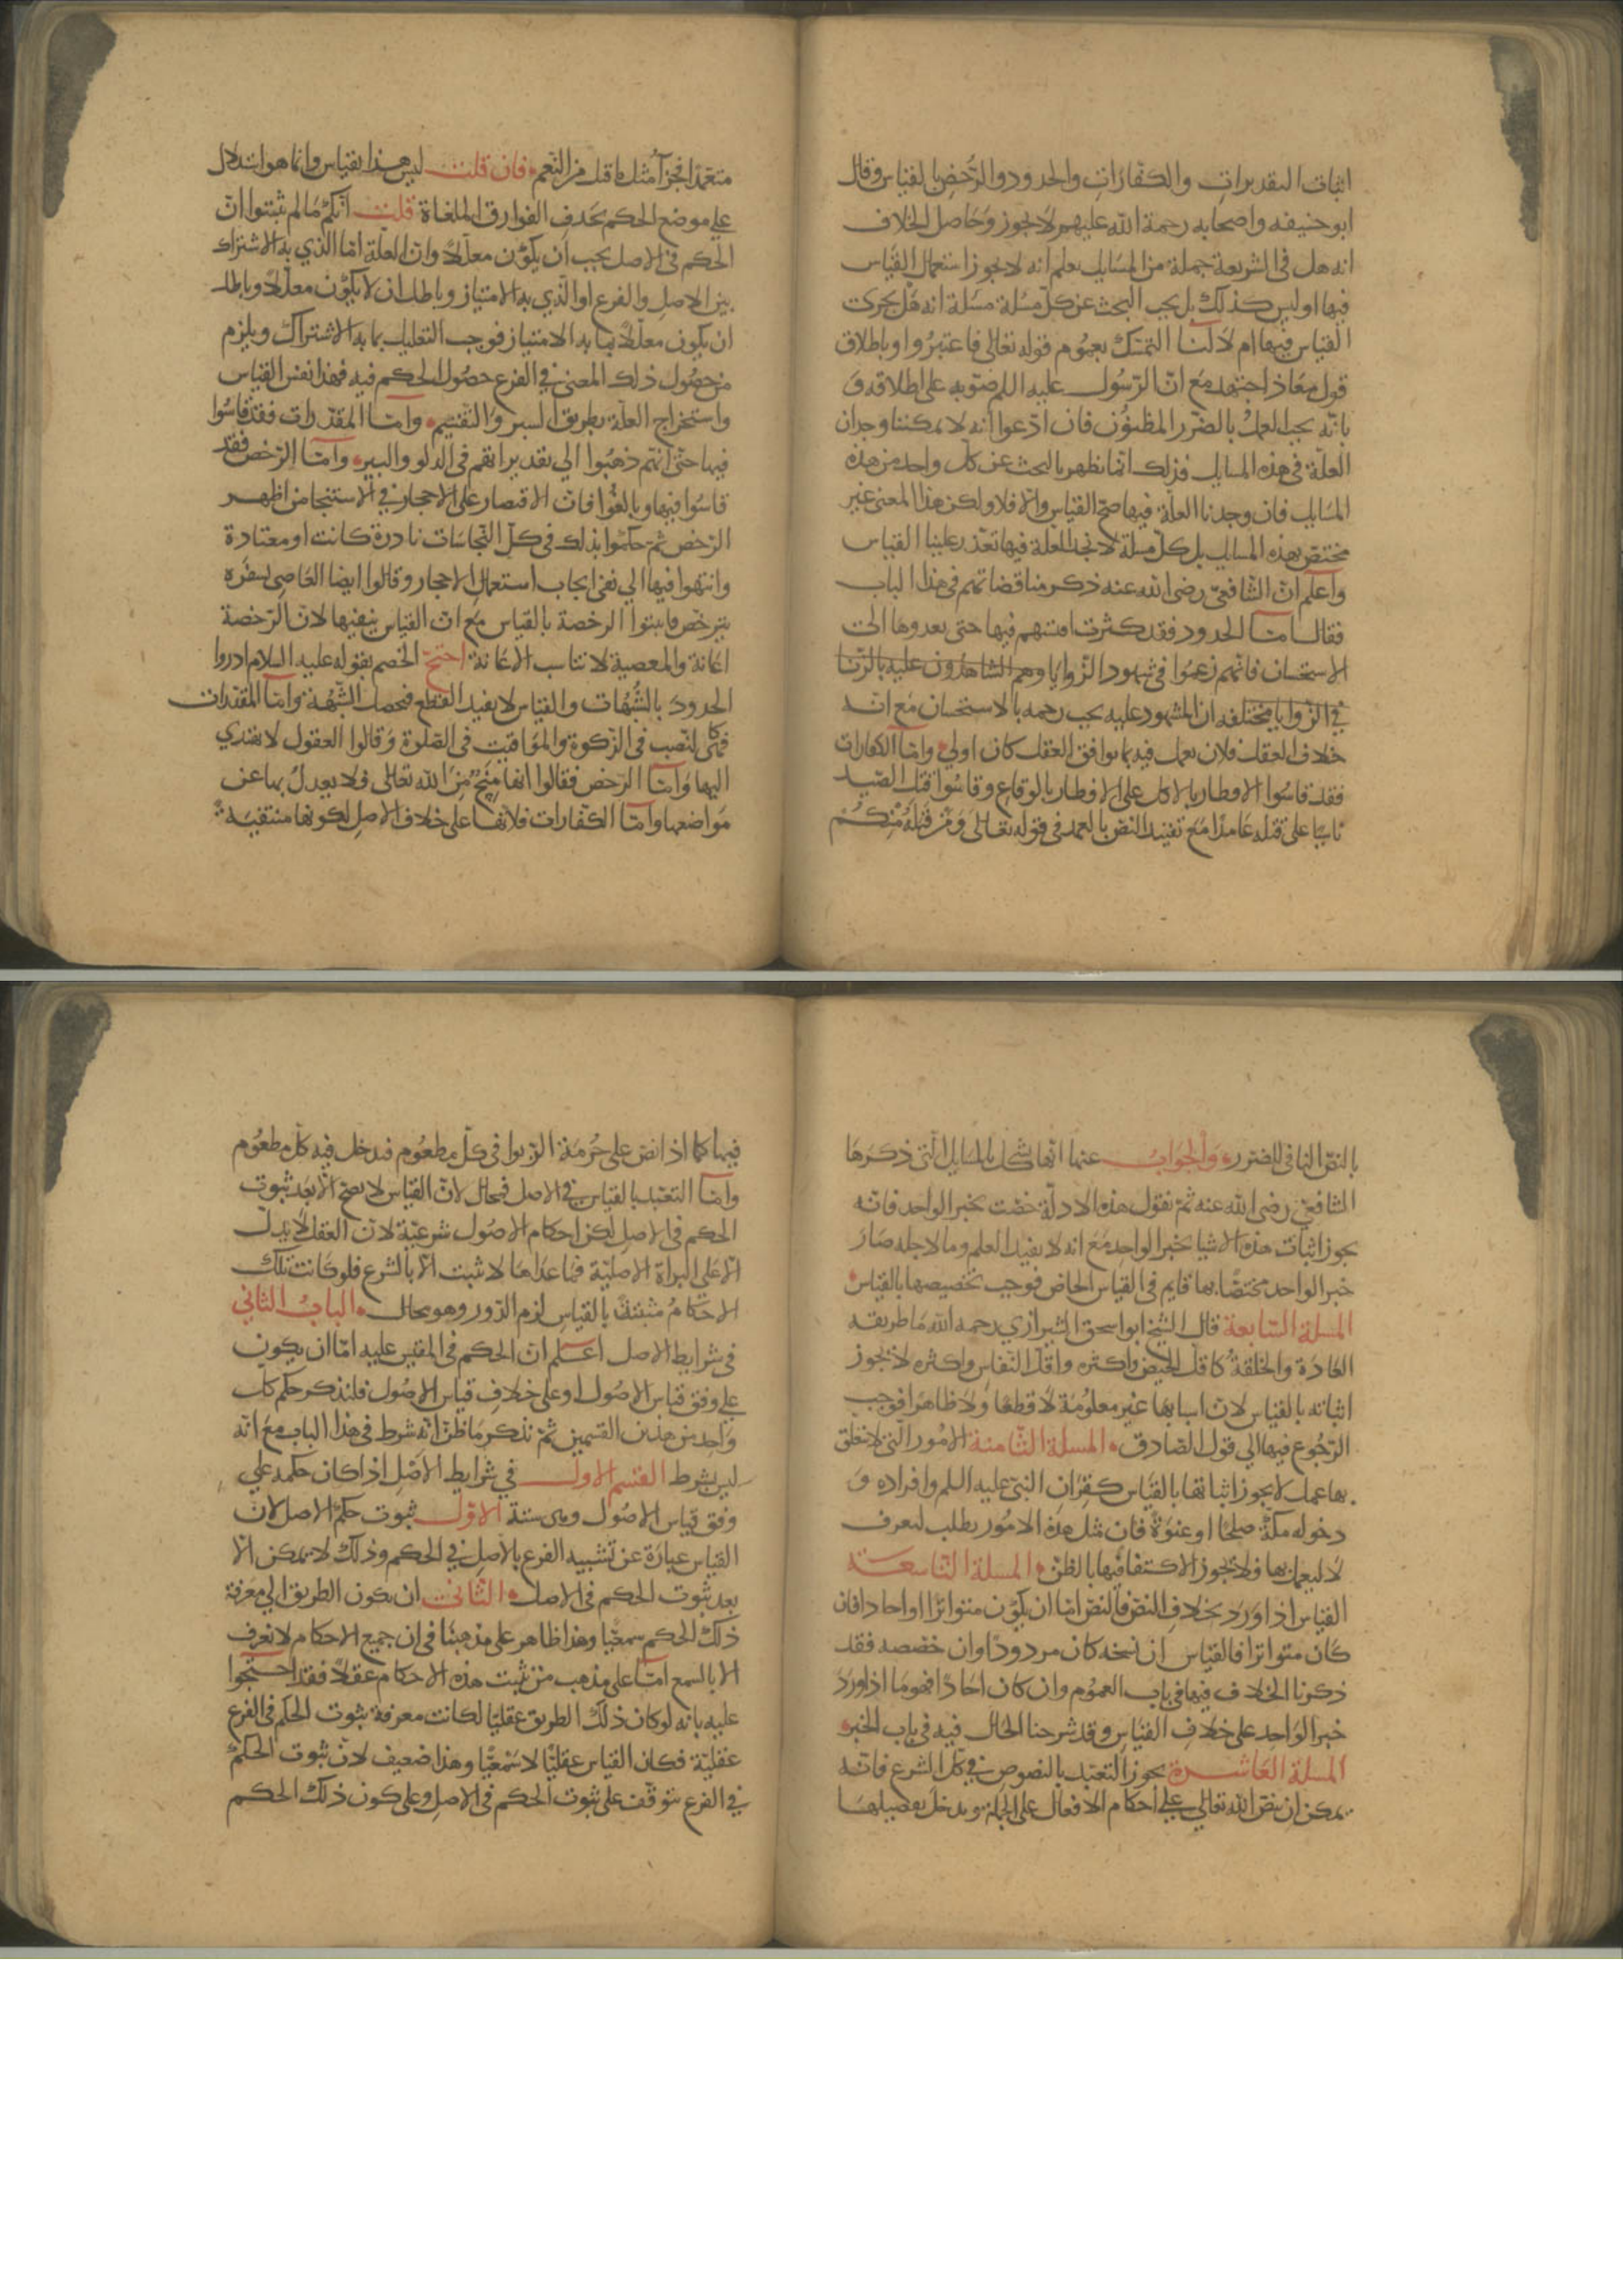 اثبات التقديراتِ والكفّاراتِ والحدودِ والرُّخصِ بالقياس وقال
ابو حنيفه واصحابه رحمة الله عليهم لا يجوز وَحاصل الخلاف
انه هل فى الشريعة جملة من المسَايل يعلم انه لا يجوز استعمال القيَاس
فيها او ليس كذلك بل يجب البحث عن كلّ مسئلة مسئلة انه هَل يجرى
القياس فيها ام لا لَنا التمسّك بعمُوم قوله تعَالى فاعتبرُوا وباطلاق
قول معَاذ اجتهد مَع انّ الرّسُول عليه السلم صوّبه على اطلاقه وَ
بانّه يجب العملُ بالضّرر المظنوُن فان ادّعوا انه لا يمكننا وجدان
العلّة فى هذه المسايل فذلك انما يظهر بالبحث عن كلّ واحد من هذه
المسَايل فان وجدنا العلّة فيها صحّ القياس والا فلا ولكن هذا المعنى غير
مختصّ بهذه المسايل بل كلّ مسئلة لا نجد العلّة فيها تعذّر علينا القياس
واعلم انّ الشّافعىّ رضى الله عنه ذكر مناقضاتهم فى هذا الباب
فقال امّا الحدود فقد كثرت اقيستهم فيها حتى يعدوها الى
الاستحسان فانّهم زعمُوا فى شهود الزّوايا وهم الشاهدُون عليه بالزّنا
في الزّوايا مختلفه ان المشهود عليه يجب رحمه بالاستحسان مَع انه
خلاف العقل فلان يعمل فيه بما يوافق العقل كان اولى وامّا الكفارات
فقد قاسُوا الافطار بالاكل على الافطار بالوقاع وقاسُوا قتل الصّيد
ناسيا على قتله عَامدا مَع تقييد النصّ بالعمد فى قوله تعَالى وَمَن قتَلهُ منكُم
متعمّدا فجزآ مثل ما قتل من النّعم فان قلت ليس هذا بقياس وانما هو استدلال
على موضع الحكم بحذف الفوارق الملغاة قلت انّكم مَا لم تثبتوا انّ
الحكم فى الاصل يجب ان يكوُن معلّلا وان العلّة امّا الذي به الاشتراك
بين الاصل والفرع او الذي به الامتياز وباطل ان لا يكوُن معلّلا وباطل
ان يكون معلّلا بما به الامتياز فوجب التعليل بما به الاشتراك ويلزم
من حصُول ذلك المعنى في الفرع حصُول الحكم فيه فهذا نفس القياس
واستخراج العلّة بطريق السبر والتقسيم وامّا المقدّرات فقد قاسُوا
فيها حتّى انهم ذهبُوا الى تقديراتهم فى الدلو والبير وامّا الرّخص فقد
قاسُوا فيها وبالغُوا فانّ الاقتصار على الاحجار في الاستنجا من اظهر
الرّخص ثم حكموا بذلك فى كلّ النّجاسَات نادرة كانت او معتادة
وانتهوا فيها الى نفى ايجاب استعمال الاحجار وقالوا ايضا العَاصى بسفره
يترخّص فاثبتوا الرخصة بالقياس مَع انّ القياس ينفيها لانّ الرّخصة
اعَانة والمعصية لا تناسب الاعَانة احتجّ الخصم بقوله عليه السلام ادروا
الحدودَ بالشُّبُهات والقياس لا يفيد القطع فحصل الشّبهة وامّا المقدّرات
فهى كالنّصب فى الزّكوة والموَاقيت فى الصّلوة وقالوا العقول لا تهتدي
اليها وَامّا الرّخص فقالوا انها مِنَحٌ مِنَ الله تعَالى فلا يعدلُ بها عن
مَواضعها وامّا الكفّارات فلانّها على خلاف الاصلِ لكونها منتفية
بالنصّ النافى للضّرر وَالجوَابُ عنهَا انّها تشكل بالمسَايل الّتى ذكرَهَا
الشّافعىّ رضى الله عنه ثمّ نقول هذه الادلّة خصّت بخبر الواحد فانّه
يجوز اثبات هذه الاشيا بخبر الواحد مَعَ انه لا يفيد العلم وما لاجله صَارَ
خبر الواحد مختصّا بها قايم فى القياس الخاص فوجب تخصيصها بالقياس
المسلة السّابعة قال الشيخ ابو اسحق الشيرازي رحمه الله مَا طريقه
العَادة والخلقةُ كاقلّ الحيض واكثره واقلّ النّفاس واكثره لا يجوز
اثباته بالقياس لانّ اسبابهَا غير معلومَة لا قطعًا وَلا ظاهرا فوجب
الرّجُوع فيها الى قول الصّادق المسلة الثّامنة الامُور الّتى لا تتعلّق
بها عمل لا يجوز اثباتها بالقيَاس كقِرَانِ النبىّ عليه السلم وافراده وَ
دخوله مكّة صلحًا او عنوَةً فان مثل هذه الامُور يطلب لتعرف
لا ليعمل بها فلا يجوز الاكتفا فيها بالظنّ المسلة التّاسعة
القياس اذا وَرَد بخلاف النصّ فالنصّ امّا ان يكوُن متواترًا او احادا فان
كَان متواترا فالقياس ان نسخه كان مردودًا وان خصّصه فقد
ذكرنا الخلاف فيها فى باب العمُوم وان كان احَادًا فهو مَا اذا ورَدَ
خبر الوَاحد على خلاف القيَاسِ وقد شرحنا الحَال فيه فى باب الخبر
المسلة العَاشرة يجوز التعبّد بالنصوص في كلّ الشرع فانه
يمكن ان ينصّ الله تعَالى على احكام الافعال على الجملة ويدخل تفصيلهَا
فيها كما اذا نصّ على حُرمَة الرّبوا فى كلّ مطعُوم فيدخل فيه كلّ مطعُوم
وامّا التعبّد بالقياس في الاصل فمحال لانّ القيَاس لا يصح الّا بَعد ثبوت
الحكم فى الاصل لكن احكام الاصُول شرعيّة لانّ العقل لا يدلّ
الّا عَلى البراة الاصليّة فما عَداهَا لا يثبت الّا بالشّرع فلو كانت تلك
الاحكَامُ مثبتةً بالقيَاسِ لزم الدّور وهو محَال البَابُ الثاني
فى شرايط الاصل اعلم انّ الحكم فى المقيس عليه امّا ان يكون
على وفق قياس الاصُول او على خلاف قياس الاصُول فلنذكر حكم كلّ
وَاحد من هذين القسمين ثمّ نذكر مَا ظنّ انّه شرط فى هذا الباب مَع انّه
ليس بشرط القسم الاول في شرايط الاصل اذا كان حكمه على
وفق قياس الاصُول وهى ستة الاوّل ثبوت حكم الاصل لانّ
القياس عبارَة عن تشبيه الفرع بالاصل في الحكم وذلك لا يمكن الّا
بعد ثبوت الحكم فى الاصل الثّانى ان يكون الطريق الى معرفة
ذلك الحكم سمعيًّا وهذا ظاهر على مذهبنا فى ان جميع الاحكام لا تعرف
الا بالسمع امّا على مذهب من يثبت هذه الاحكام عقلًا فقد احتجّوا
عليه بانّه لو كان ذلك الطريق عقليّا لكانت معرفة ثبوت الحكم فى الفرع
عقليّة فكان القياس عقليًّا لا سَمعيًّا وهذا ضعيف لانّ ثبوت الحكم
في الفرع يتوقّف على ثبوت الحكم فى الاصل وعلى كون ذلك الحكم